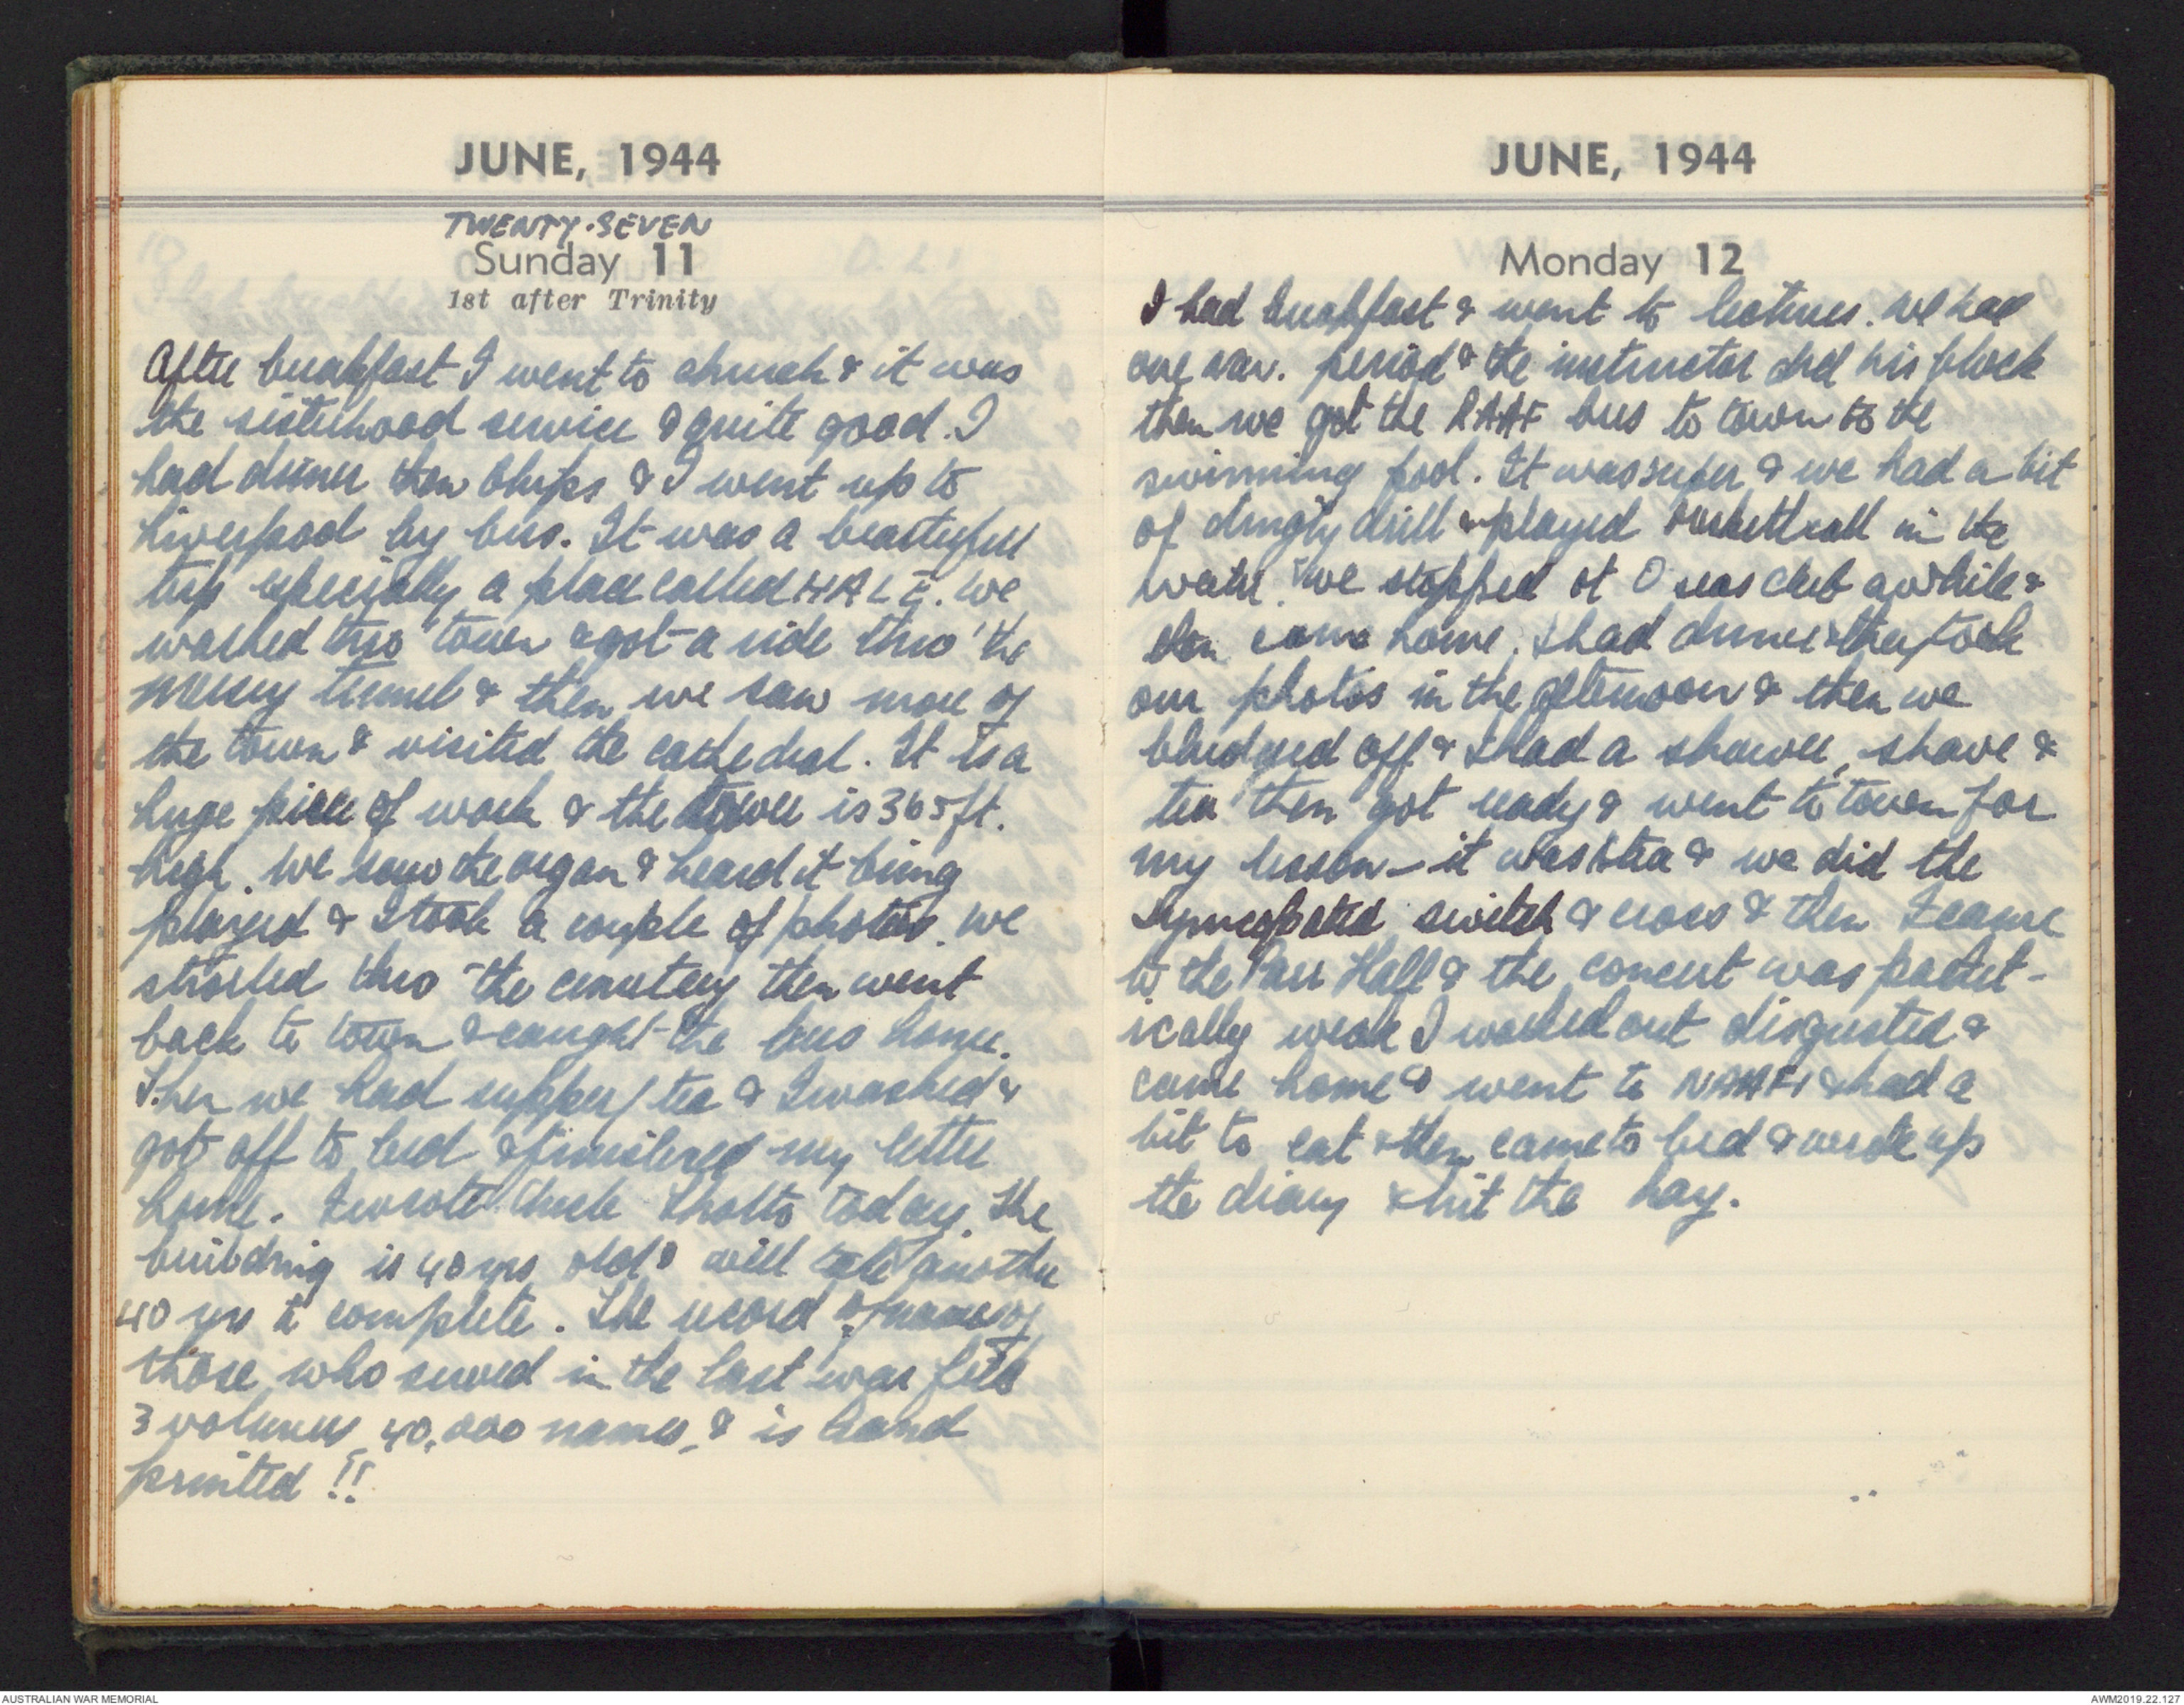 JUNE, 1944
TWENTY-SEVEN
Sunday 11
1st after Trinity
After breakfast I went to church & it was
the sisterhood service & quite good. I
had dinner then Chips & I went up to
Liverpool by bus. It was a beautiful
trip especially a place called HALE. We
walked thro' town & got a ride thro' the
Mersey tunnel & then we saw more of
the town & visited the cathedral. It is a
huge piece of work & the tower is 365 ft.
high. We saw the organ & heard it being
played & I took a couple of photos. We
strolled thro the cemetery then went
back to town & caught the bus home.
Then we had supper / tea & I washed &
got off to bed & finished my letter
home. I wrote Uncle today. The
building is 40 yrs old & will take another
40 yrs to complete. The record of names of
those who served in the last war fills
3 volumes, 40,000 names, & is hand
printed !!
JUNE, 1944
Monday 12
I had breakfast & went to lectures. We had
one nav. period & the instructor did his block
then we got the RAAF bus to town to the
swimming pool. It was super & we had a bit
of dinghy drill & played basketball in the
water. We stopped at O'seas club awhile &
then came home. I had dinner & they took
our photos in the afternoon & then we
bludged off & I had a shower, shave &
tea then got ready & went to town for
my lesson - it was & we did the
syncopated switch & cross & then I came
to the Parr Hall & the concert was pathet-
ically weak I walked out disgusted &
came home & went to NAAFI & had a
bit to eat & then came to bed & wrote up
the diary & hit the hay.
AUSTRALIAN WAR MEMORIAL
AWM2019.22.127